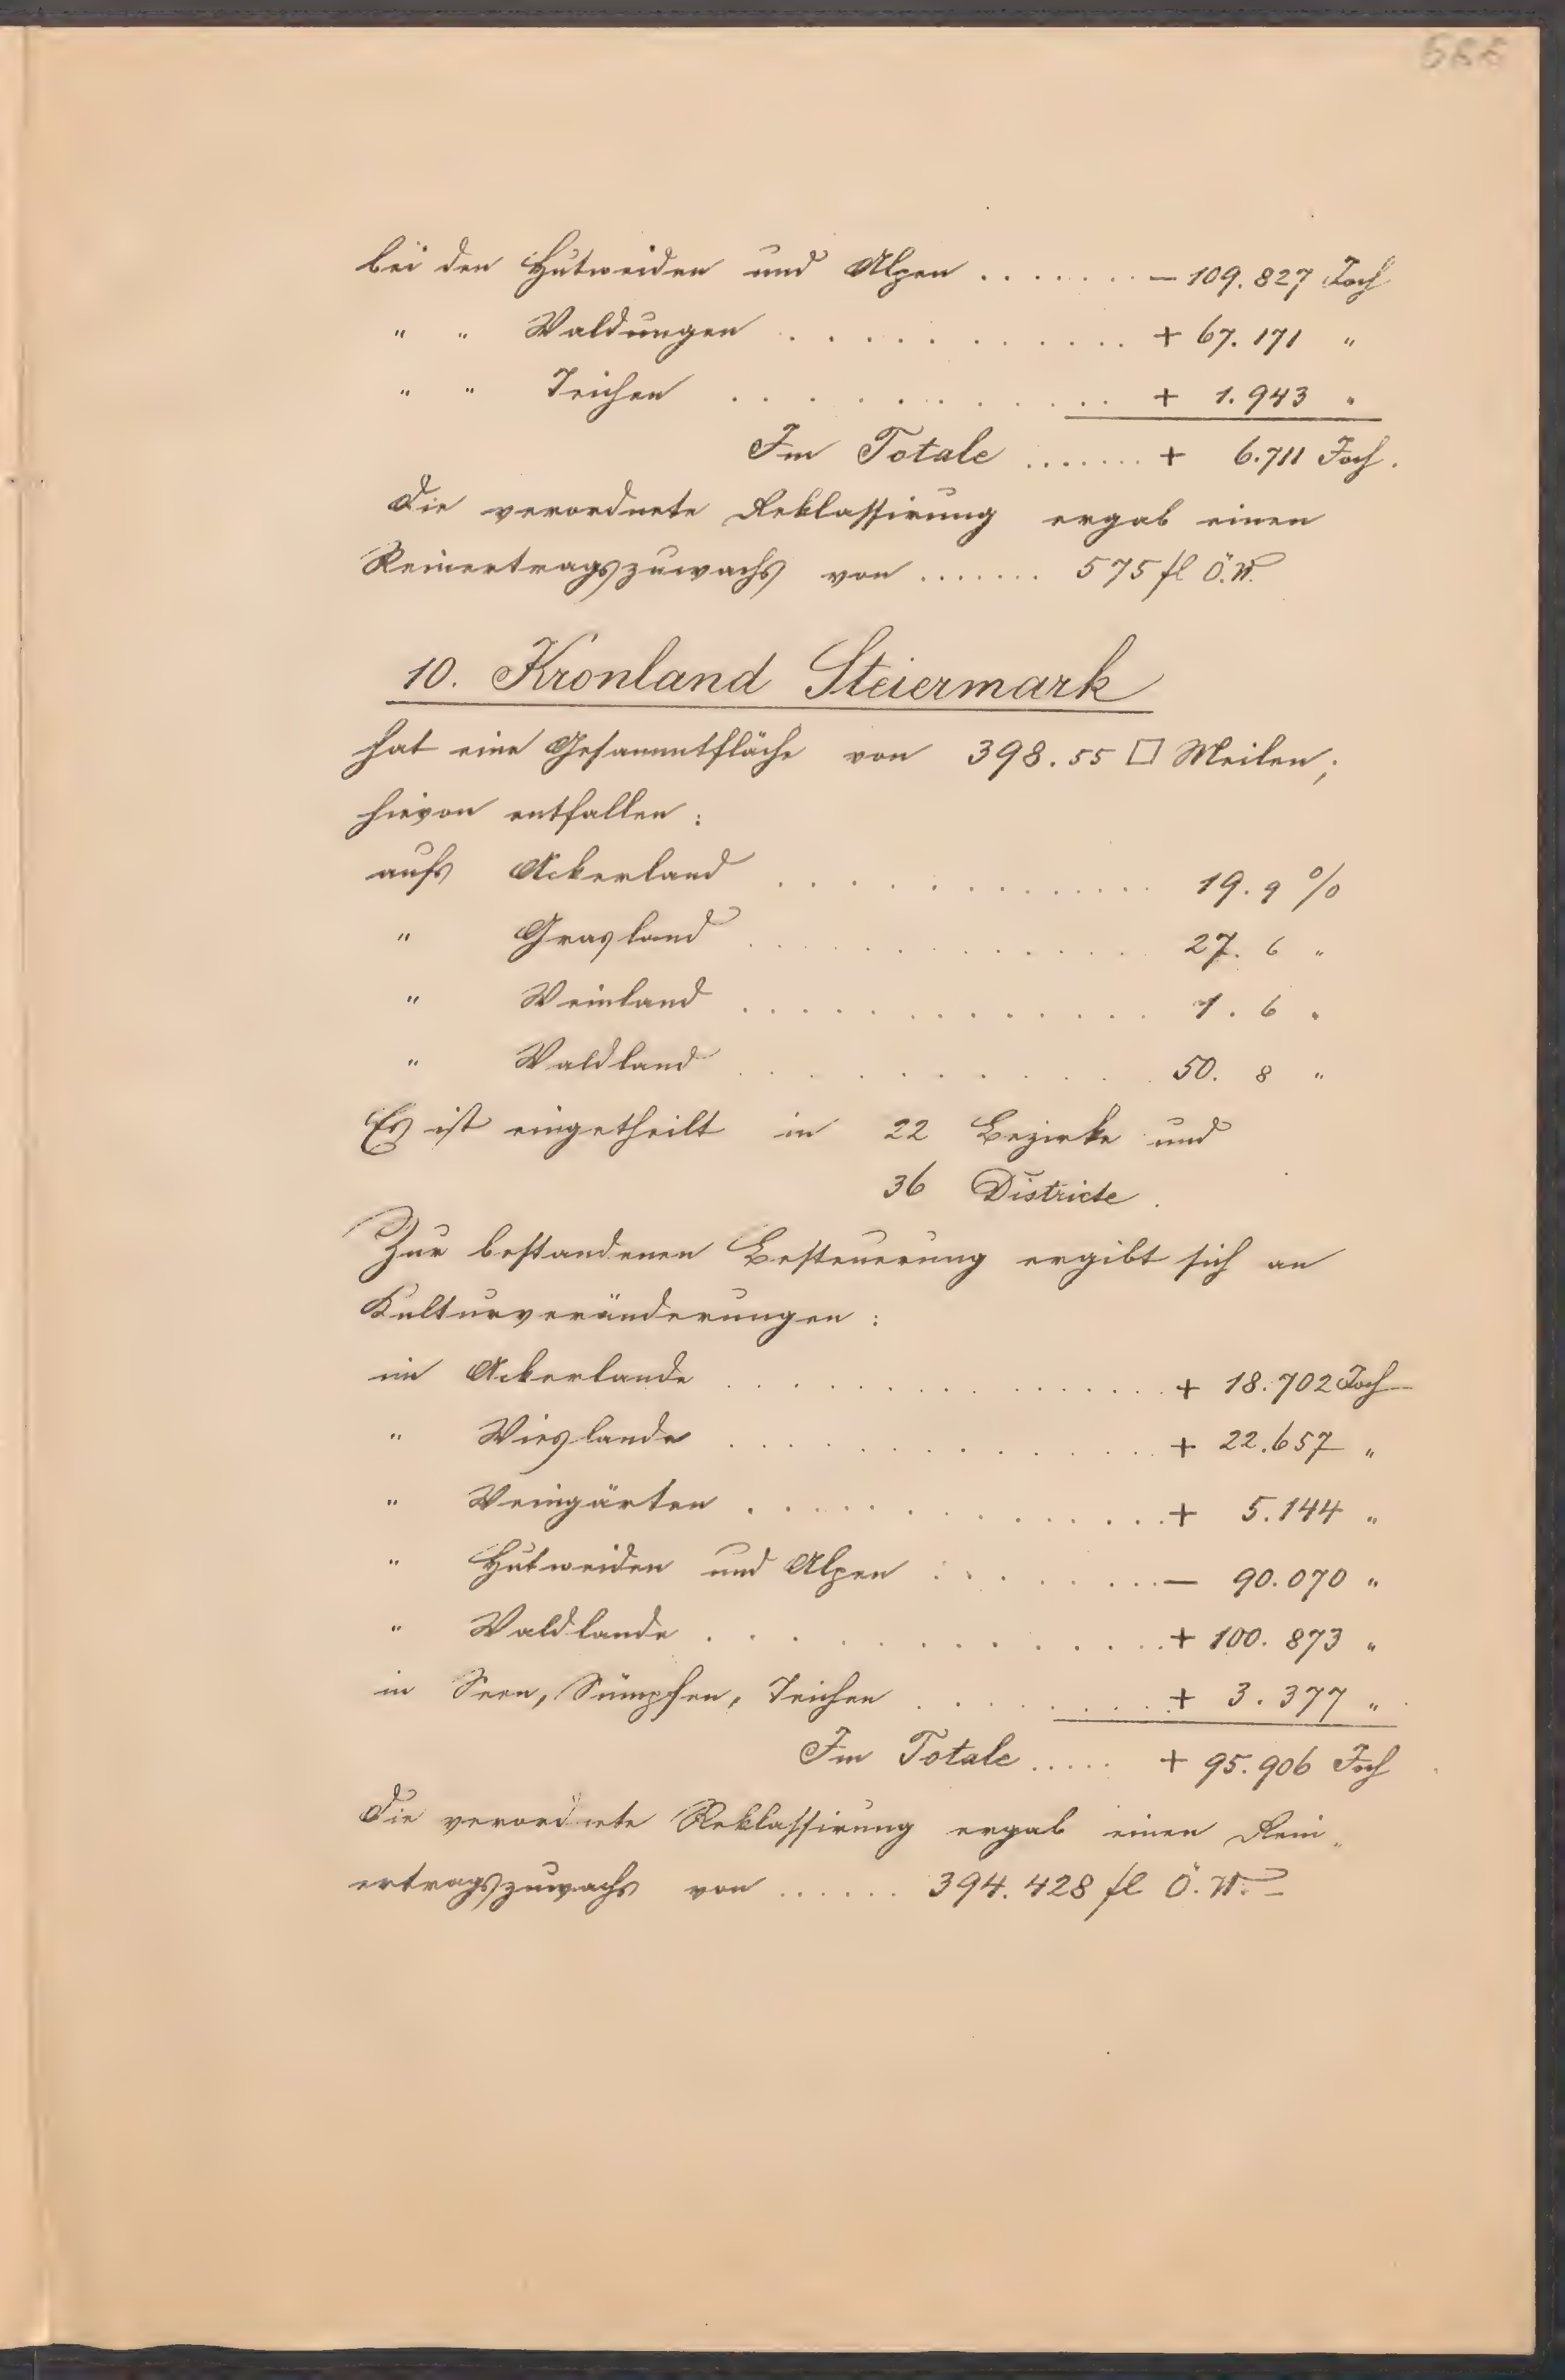 bei den Hutweiden und Alpen . . . . . . . – 109.827 Joch
" " Waldungen . . . . . . . . . . . . + 67.171 "
" " Teichen . . . . . . . . . . . . . + 1.943 "
Im Totale . . . . . . . + 6.711 Joch.
Die verordnete Reklassirung ergab einen
Reinertragszuwachs von . . . . . . . 575 fl Ö.W.
10. Kronland Steiermark
hat eine Gesammtfläche von 398.55 □ Meilen;
hievon entfallen:
aufs Ackerland . . . . . . . . . . . . . . 19.9 %
" Grasland . . . . . . . . . . . . . . 27.6 "
" Weinland . . . . . . . . . . . . . . 1.6 "
" Waldland . . . . . . . . . . . . . 50.8 "
Es ist eingetheilt in 22 Bezirke und
36 Districte.
Zur bestandenen Besteuerung ergibt sich an
Kulturveränderungen:
im Ackerlande . . . . . . . . . . . . . . . + 18.702 Joch
" Wieslande . . . . . . . . . . . . . . . + 22.657 "
" Weingärten . . . . . . . . . . . . . . . + 5.144 "
" Hutweiden und Alpen . . . . . . . . . – 90.070 "
" Waldlande . . . . . . . . . . . . . . . + 100.873 "
in Seen, Sümpfen, Teichen . . . . . . . . + 3.377 "
Im Totale . . . . . + 95.906 Joch
Die verordnete Reklassirung ergab einen Rein„
ertragszuwachs von . . . . . . 394.428 fl Ö.W.